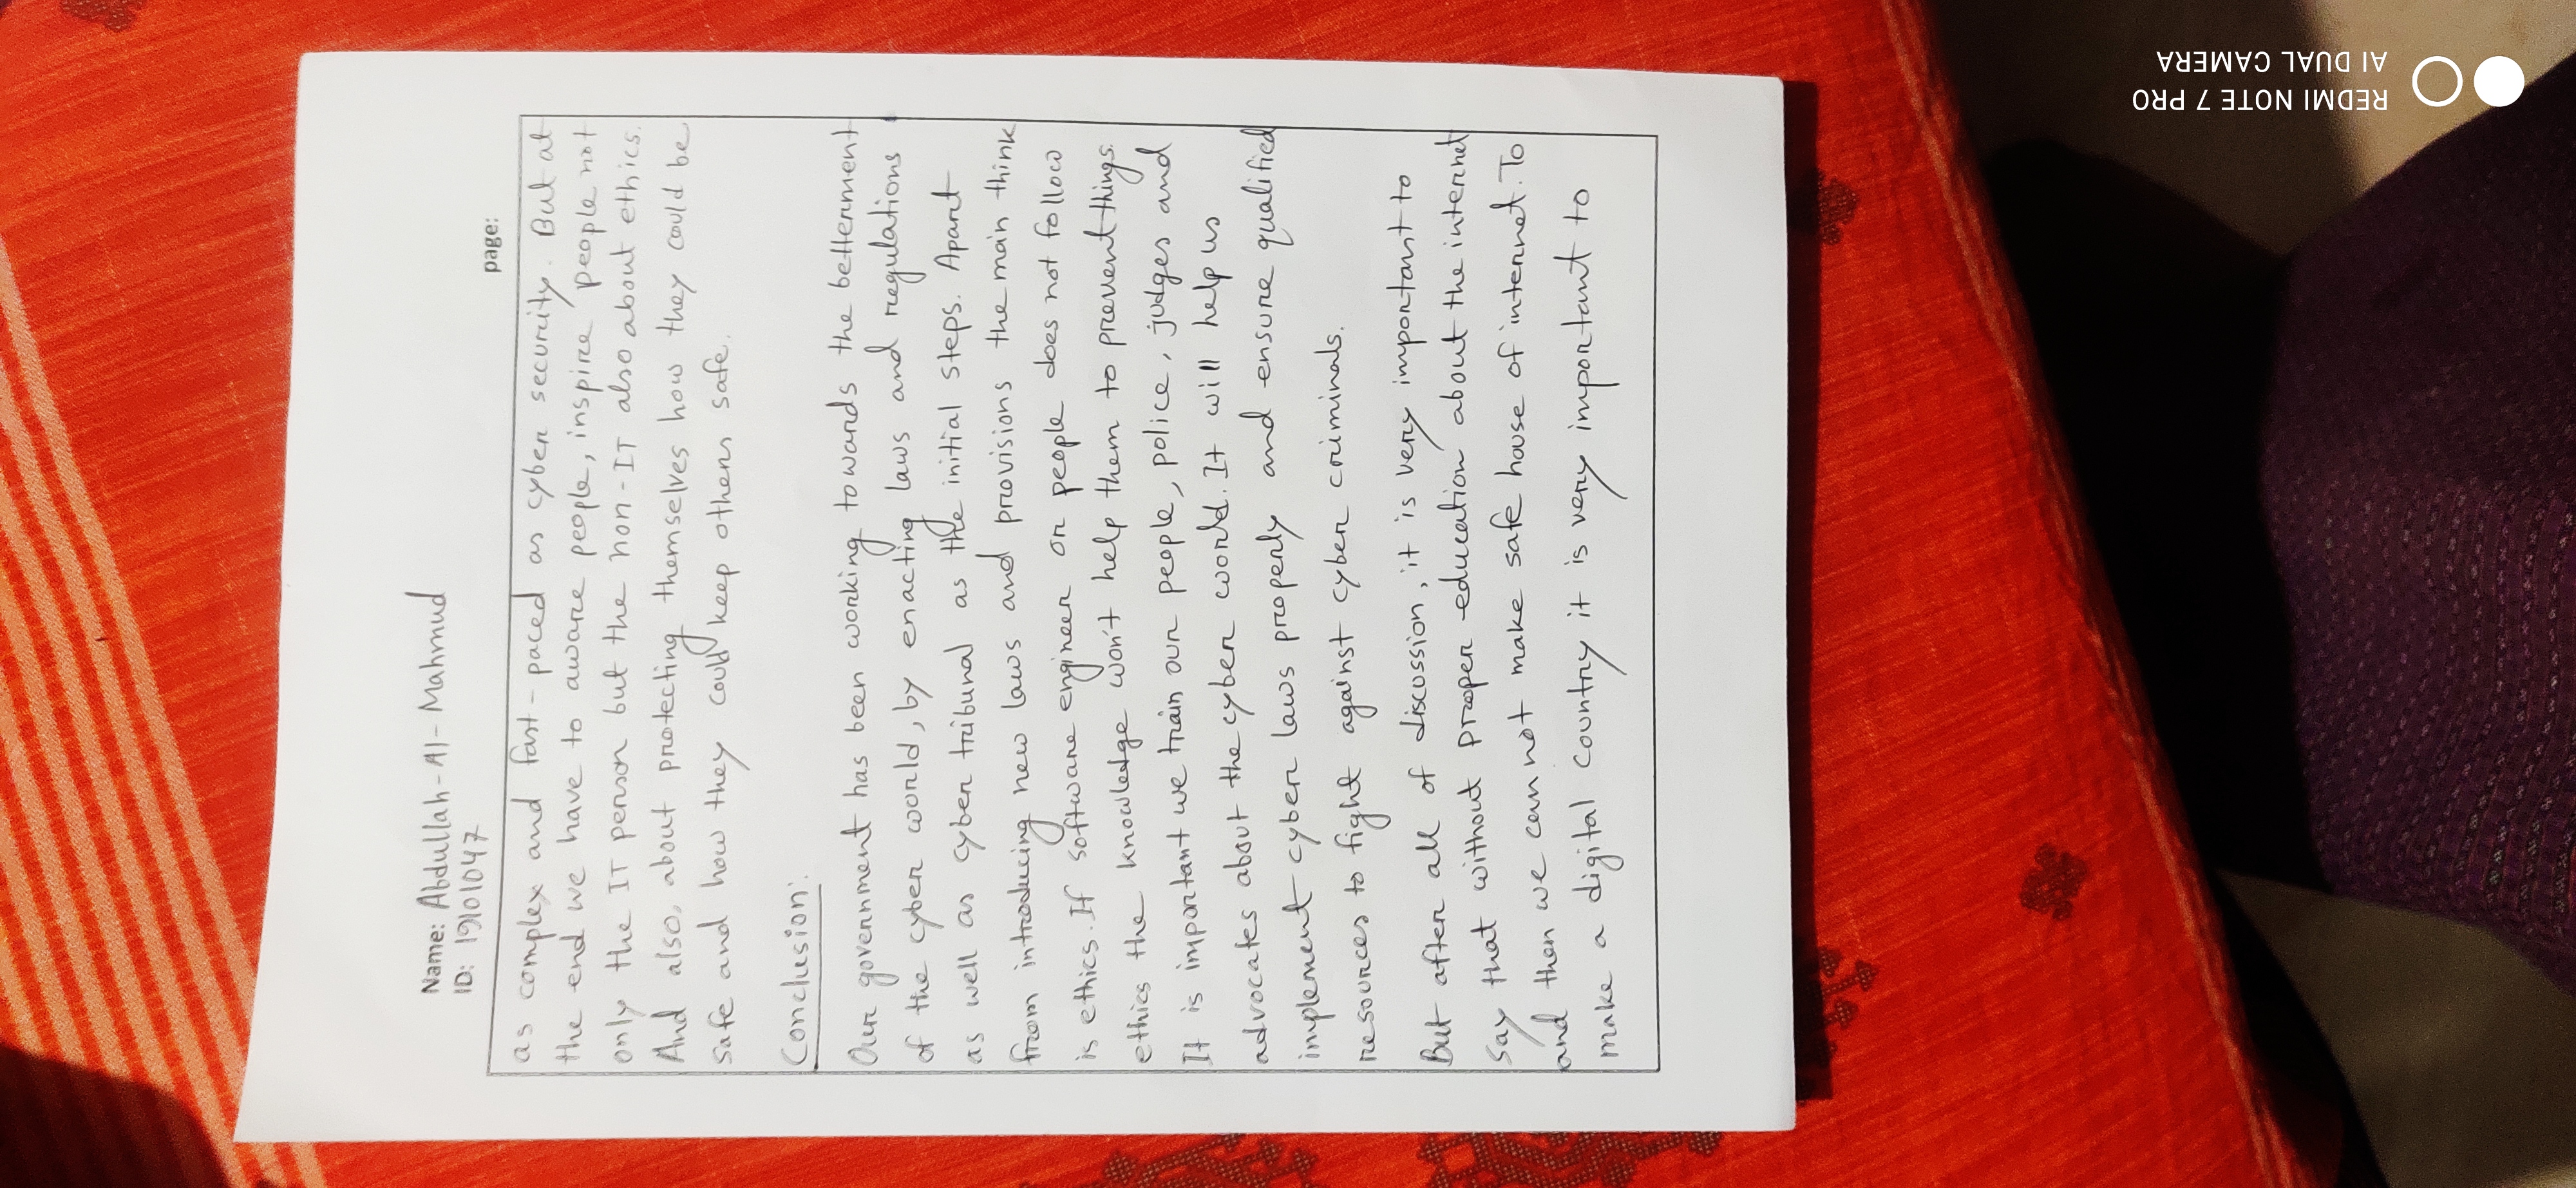 Name: Abdullah-Al-Mahmud
ID: 19101047
page:
as complex and fast-paced as cyber security. But at
the end we have to aware people, inspire people not
only the IT person but the non-IT also about ethics.
And also, about protecting themselves how they could be
safe and how they could keep others safe.
Conclusion:
Our government has been working towards the betterment
of the cyber world, by enacting laws and regulations
as well as cyber tribunal as the initial steps. Apart
from introducing new laws and provisions the main think
is ethics. If software engineer or people does not follow
ethics the knowledge won't help them to prevent things.
It is important we train our people, police, judges and
advocates about the cyber world. It will help us
implement cyber laws properly and ensure qualified
resources to fight against cyber criminals.
But after all of discussion, it is very important to
say that without proper education about the internet
and then we can not make safe house of internet. To
make a digital country it is very important to
REDMI NOTE 7 PRO
AI DUAL CAMERA